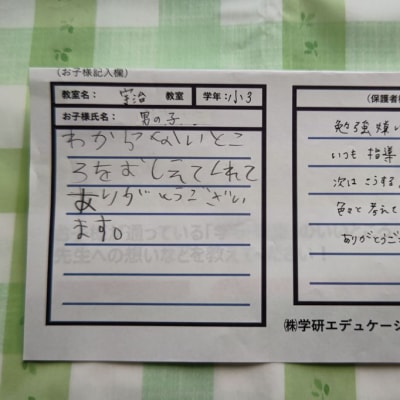 (お子様記入欄)
教室名: 宇治 教室 学年: 小3
お子様氏名: 男の子
わからないとこ
ろをおしえてくれて
ありがとうござい
ます。
(保護者様
勉強嫌い
いつも指導
次はこうする
色々と考えて
ありがとうござ
㈱学研エデュケーシ